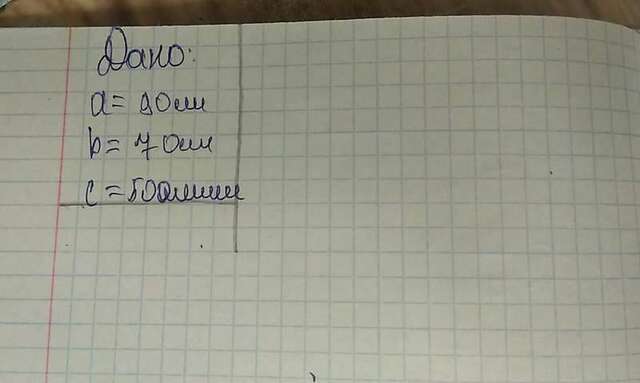 Дано:
a= 90см
b= 70см
c=500мм